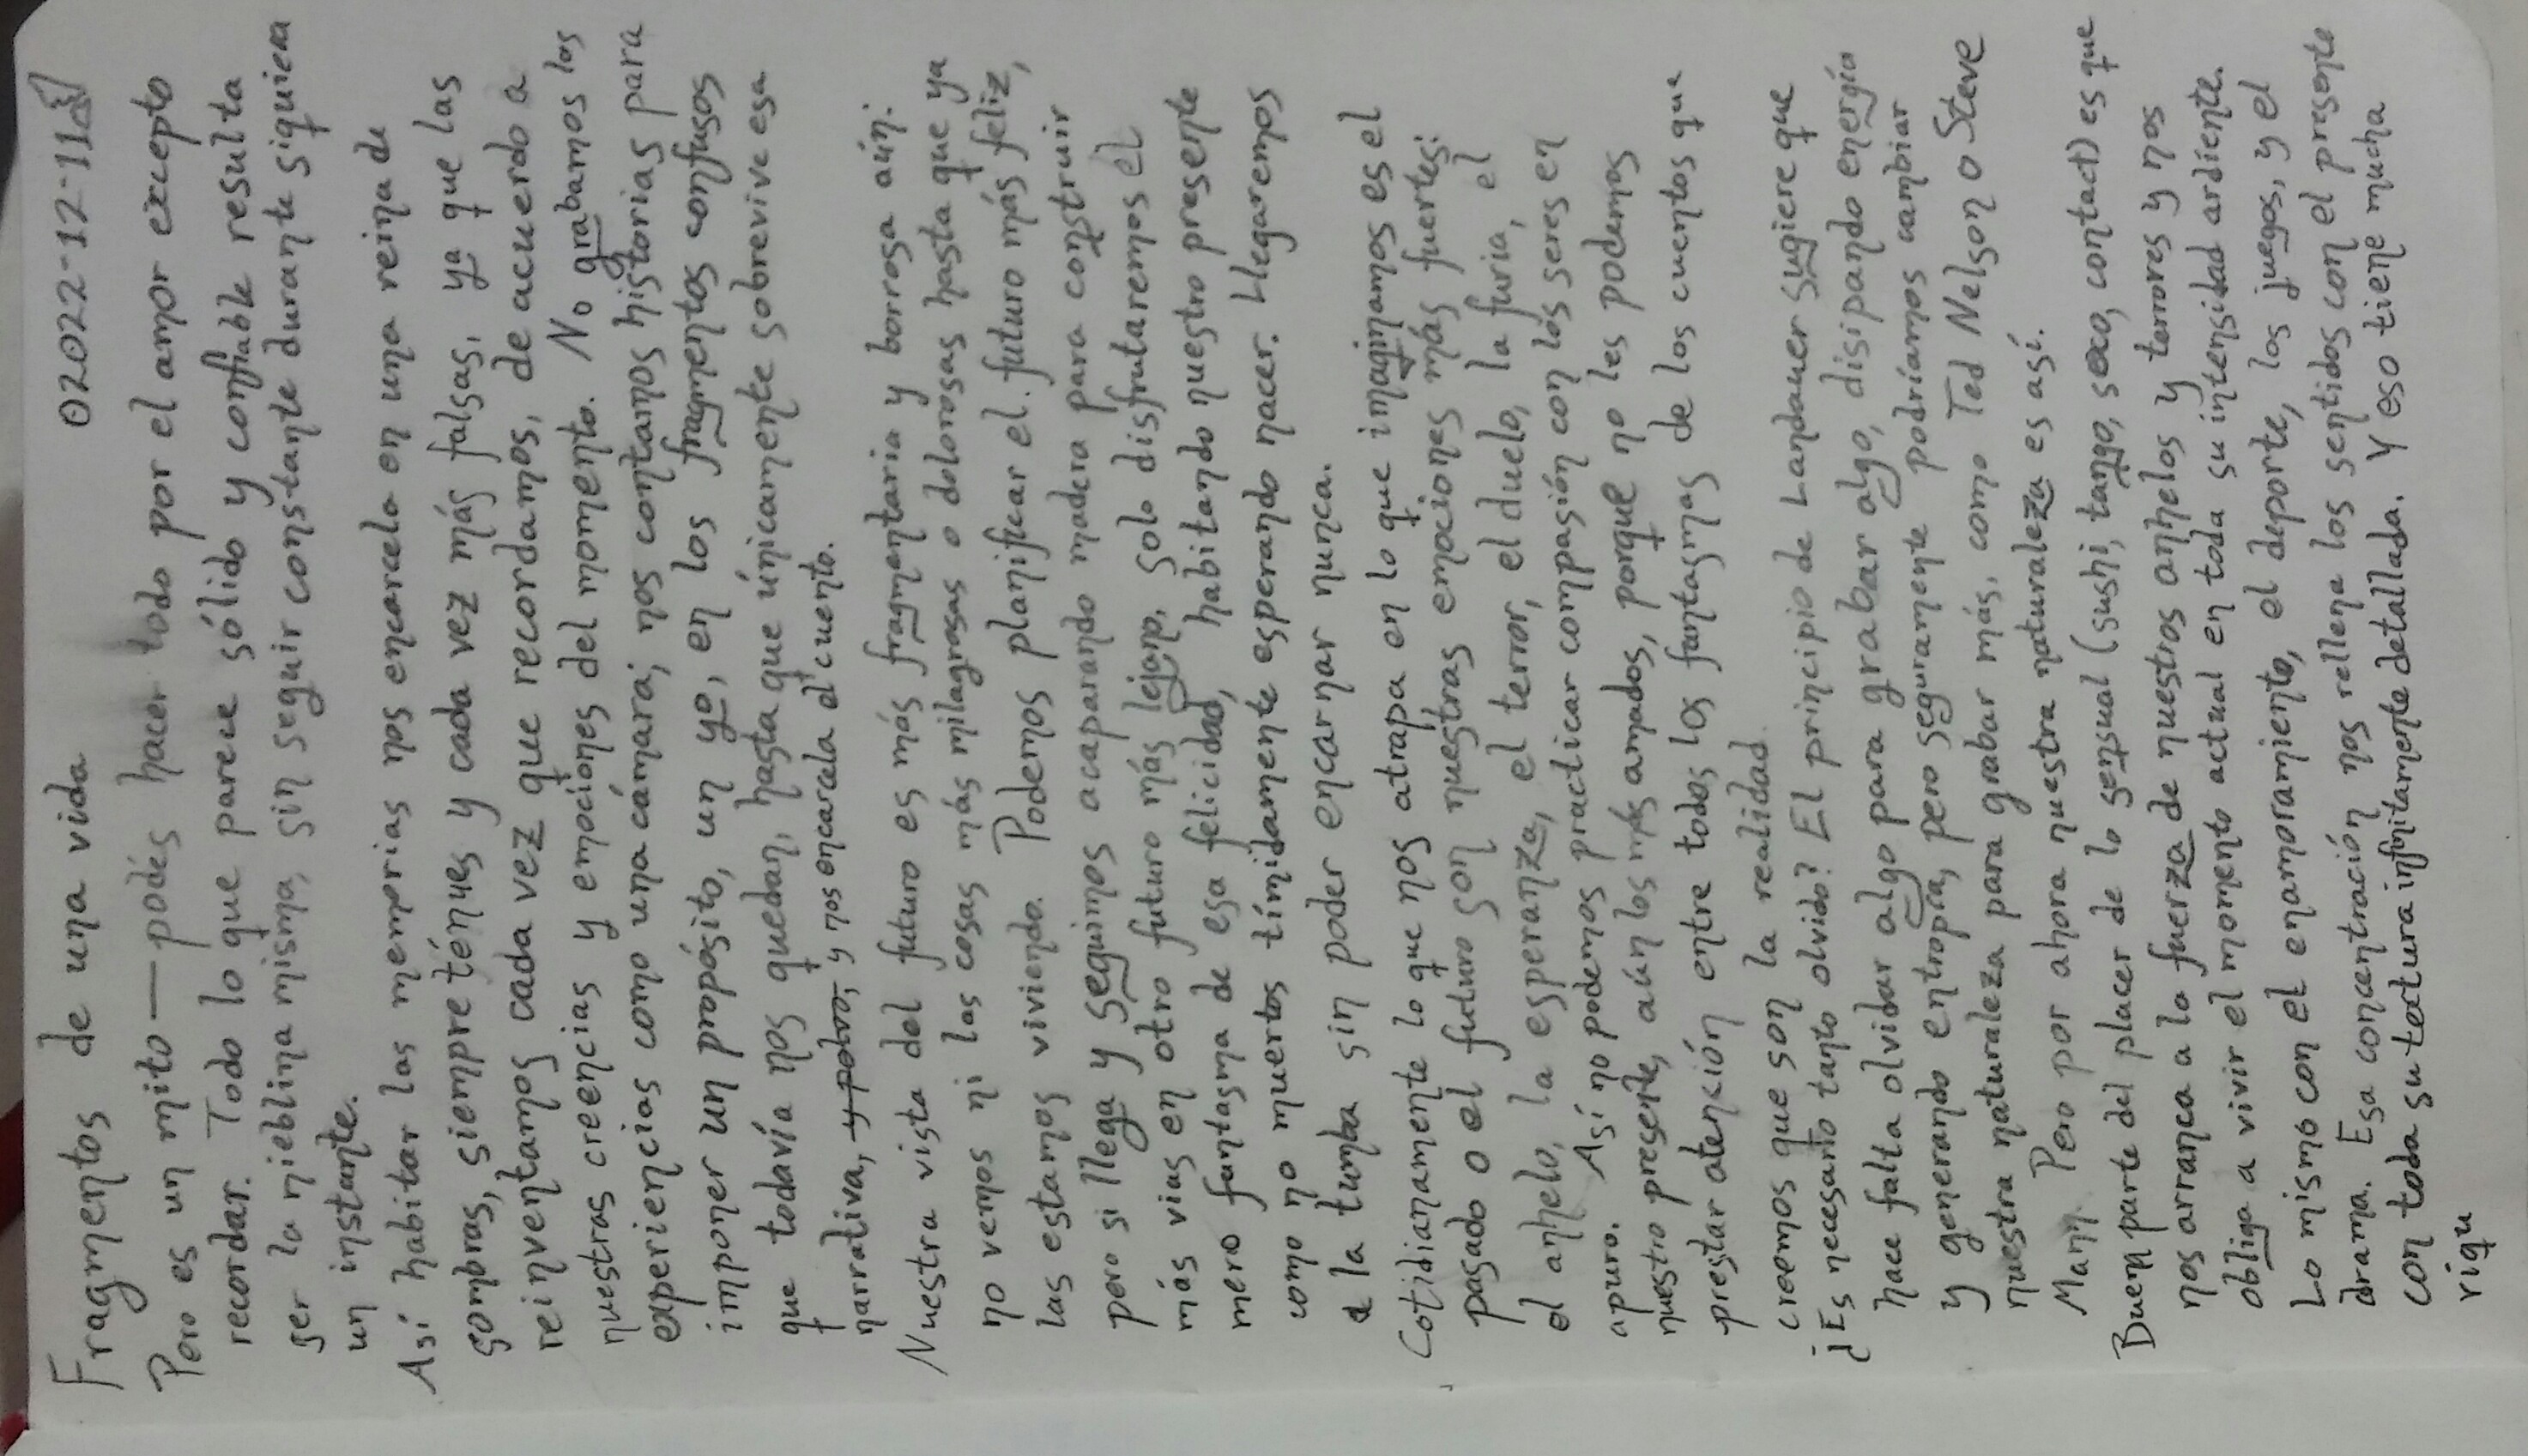 Fragmentos de una vida 02022-12-11
Pero es un mito — podés hacer todo por el amor excepto
recordar. Todo lo que parece sólido y confiable resulta
ser la nieblina misma, sin seguir constante durante siquiera
un instante.
Así habitar las memorias nos encarcela en una reina de
sombras, siempre ténues y cada vez más falsas, ya que las
reinventamos cada vez que recordamos, de acuerdo a
nuestras creencias y emociones del momento. No grabamos las
experiencias como una cámara; nos contamos historias para
imponer un propósito, un yo, en los fragmentos confusos
que todavía nos quedan, hasta que únicamente sobrevive esa
narrativa, y nos encarcela el cuento.
Nuestra vista del futuro es más fragmentaria y borrosa aún:
no vemos ni las cosas más milagrosas o dolorosas hasta que ya
las estamos viviendo. Podemos planificar el futuro más feliz,
pero si llega y seguimos acaparando madera para construir
más vias en otro futuro más lejano, solo disfrutaremos el
mero fantasma de esa felicidad, habitando nuestro presente
como no muertos tímidamente esperando nacer. Llegaremos
a la tumba sin poder encarnar nunca.
Cotidianamente lo que nos atrapa en lo que imaginamos es el
pasado o el futuro son nuestras emociones más fuertes:
el anhelo, la esperanza, el terror, el duelo, la furia, el
apuro. Así no podemos practicar compasión con los seres en
nuestro presente, aún los más amados, porque no les podemos
prestar atención entre todos los fantasmas de los cuentos que
creemos que son la realidad.
¿Es necesario tanto olvido? El principio de Landauer sugiere que
hace falta olvidar algo para grabar algo, disipando energía
y generando entropía, pero seguramente podríamos cambiar
nuestra naturaleza para grabar más, como Ted Nelson o Steve
Mann. Pero por ahora nuestra naturaleza es así.
Buena parte del placer de lo sensual (sushi, tango, sexo, contact) es que
nos arranca a la fuerza de nuestros anhelos y terrores y nos
obliga a vivir el momento actual en toda su intensidad ardiente.
Lo mismo con el enamoramiento, el deporte, los juegos, y el
drama. Esa concentración nos rellena los sentidos con el presente
con toda su textura infinitamente detallada. Y eso tiene mucha
riqu